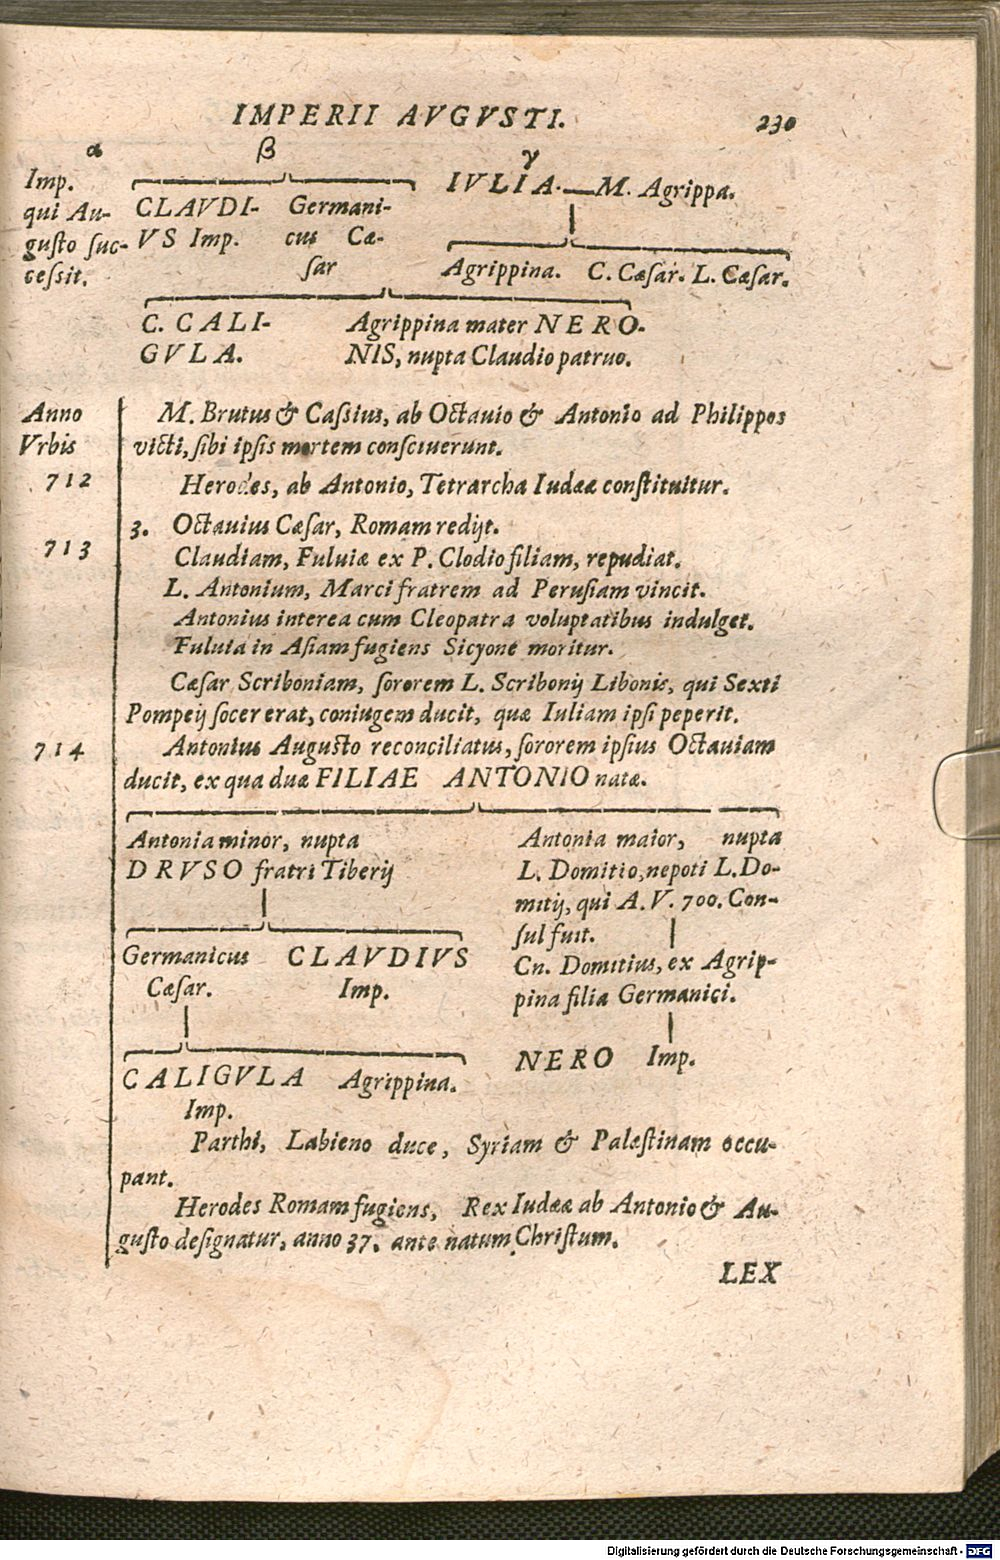 IMPERII AVGVSTI. 230
α β γ
Imp.
qui Au-
gusto suc-
cessit.
CLAVDI- Germani-
VS Imp. cus Cæ-
sar
IVLIA. M. Agrippa.
Agrippina. C. Cæsar. L. Cæsar.
C. CALI- Agrippina mater NERO-
GVLA. NIS, nupta Claudio patruo.
Anno
Vrbis
M. Brutus & Cassius, ab Octauio & Antonio ad Philippos
victi, sibi ipsis mortem consciuerunt.
712 Herodes, ab Antonio, Tetrarcha Iudææ constituitur.
3. Octauius Cæsar, Romam redijt.
713 Claudiam, Fuluiæ ex P. Clodio filiam, repudiat.
L. Antonium, Marci fratrem ad Perusiam vincit.
Antonius interea cum Cleopatra voluptatibus indulget.
Fuluia in Asiam fugiens Sicyone moritur.
Cæsar Scriboniam, sororem L. Scribonij Libonis, qui Sexti
Pompeij socer erat, coniugem ducit, quæ Iuliam ipsi peperit.
714 Antonius Augusto reconciliatus, sororem ipsius Octauiam
ducit, ex qua duæ FILIAE ANTONIO natæ.
Antonia minor, nupta
DRVSO fratri Tiberij
Germanicus CLAVDIVS
Cæsar. Imp.
CALIGVLA Agrippina.
Imp.
Antonia maior, nupta
L. Domitio, nepoti L. Do-
mitij, qui A. V. 700. Con-
sul fuit.
Cn. Domitius, ex Agrip-
pina filia Germanici.
NERO Imp.
Parthi, Labieno duce, Syriam & Palæstinam occu-
pant.
Herodes Romam fugiens, Rex Iudææ ab Antonio & Au-
gusto designatur, anno 37. ante natum Christum.
LEX
Digitalisierung gefördert durch die Deutsche Forschungsgemeinschaft - DFG